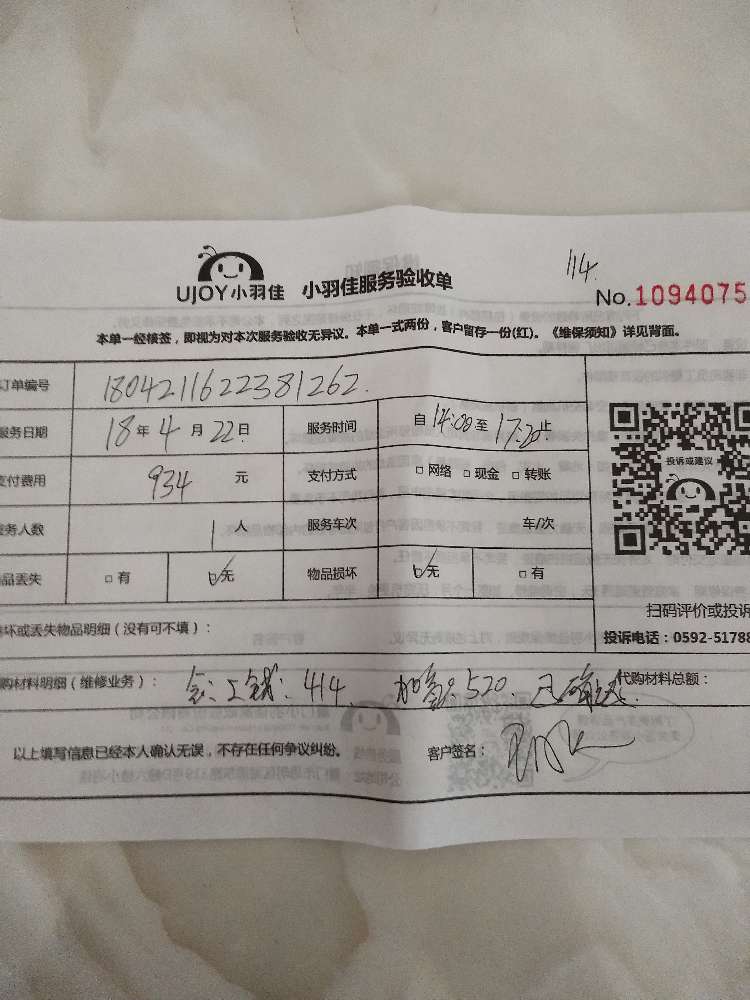 114.
UJOY小羽佳 小羽佳服务验收单
No.1094075
本单一经核签，即视为对本次服务验收无异议。本单一式两份，客户留存一份(红)。《维保须知》详见背面。
订单编号 1804211622381262.
服务日期 18年4月22日 服务时间 自14:00至17:20止
支付费用 934 元 支付方式 □网络 □现金 □转账
服务人数 1人 服务车次 车/次
投诉或建议
物品丢失 □有 ☑无 物品损坏 ☑无 □有
损坏或丢失物品明细（没有可不填）：
扫码评价或投诉
投诉电话：0592-51788
代购材料明细（维修业务）： 工钱：414. 520. 已确认 代购材料总额：
以上填写信息已经本人确认无误，不存在任何争议纠纷。 客户签名：